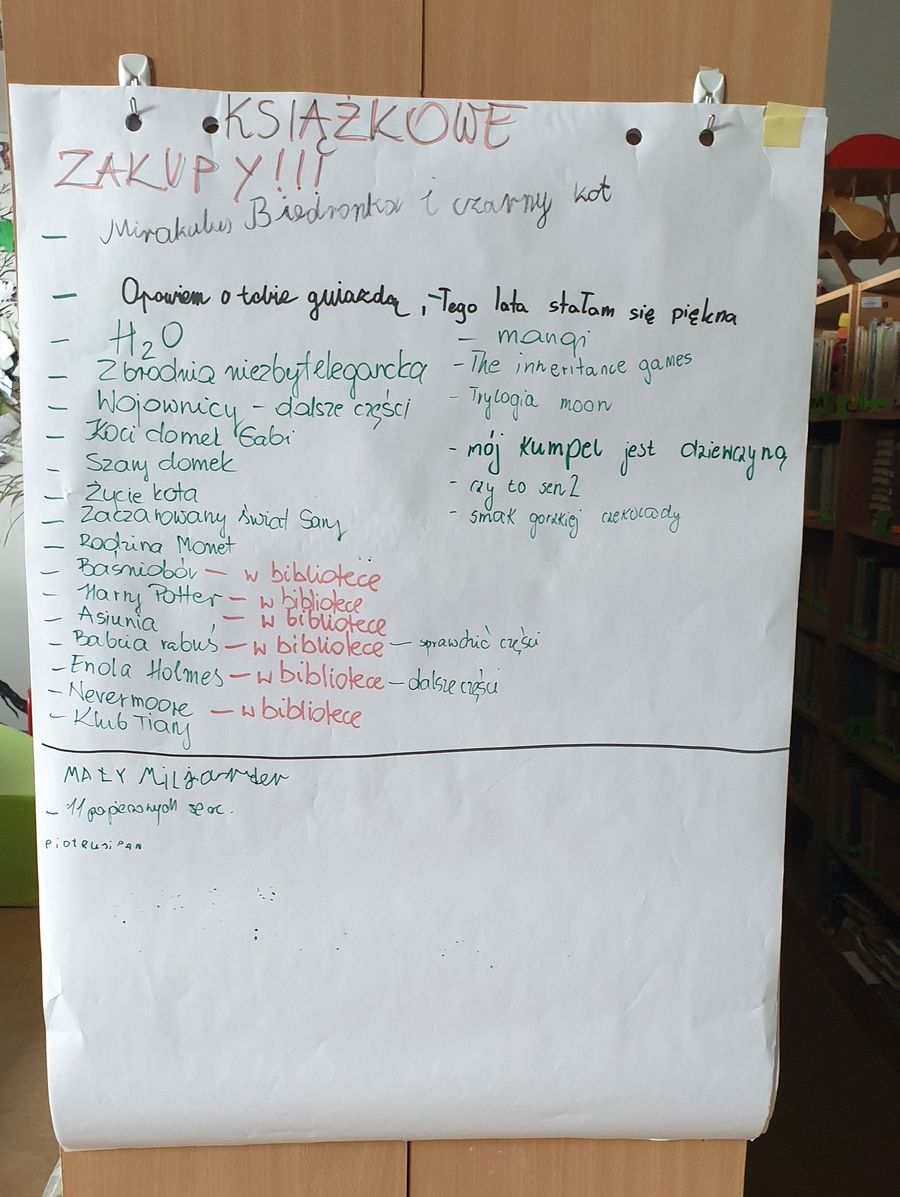 KSIĄŻKOWE
ZAKUPY!!!
– Mirakulus Biedronka i czarny kot
– Opowiem o tobie gwiazdą, – Tego lata stałam się piękna
– H2O
– mangi
– Zbrodnia niezbyt elegancka
– The inheritance games
– Wojownicy – dalsze części
– Trylogia moon
– Koci domek Gabi
– mój kumpel jest dziewczyną
– Szary domek
– czy to sen?
– Życie kota
– smak gorzkiej czekolady
– Zaczarowany świat Sary
– Rodzina Monet
– Baśniobór – w bibliotece
– Harry Potter – w bibliotece
– Asiunia – w bibliotece
– Babcia rabuś – w bibliotece – sprawdzić części
– Enola Holmes – w bibliotece – dalsze części
– Nevermoore – w bibliotece
– Klub Tiary
MAŁY Miljarder
– 11 papierowych serc.
PiotRusi PAN